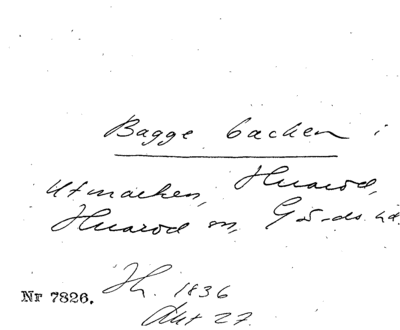 Bagge backen i
Utmarken, Huaröd,
Huaröd sn, Gärds hd.
Nr 7826. Th. 1836
Akt 27.